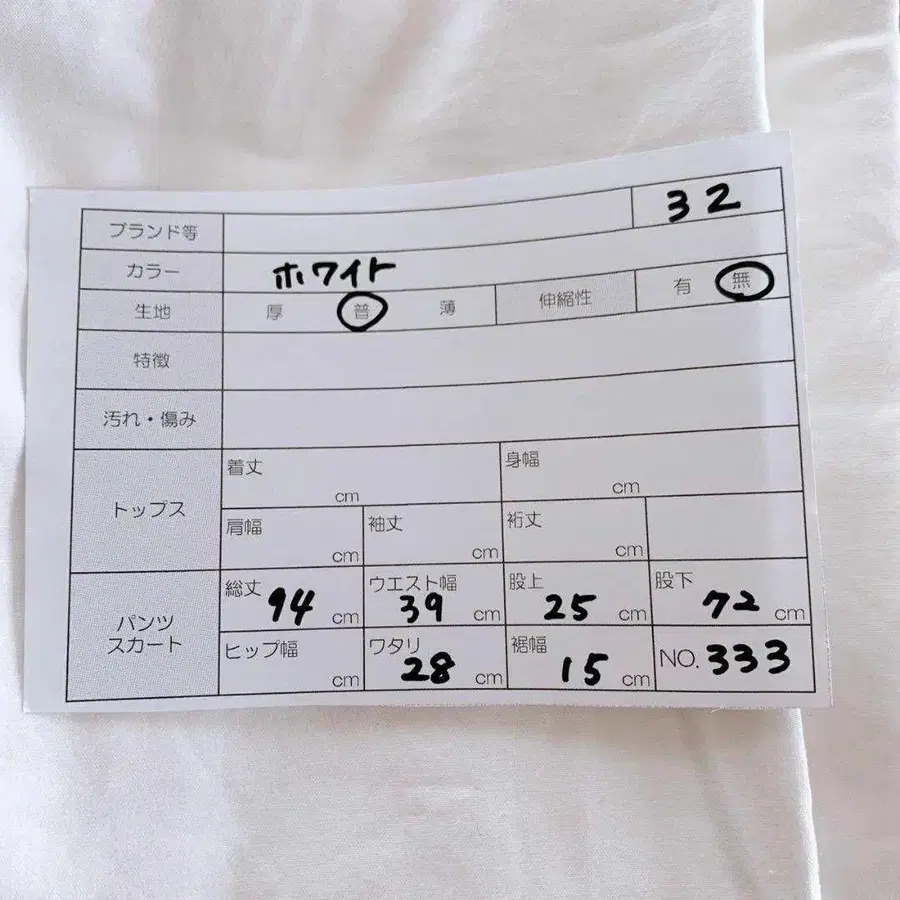 ブランド等 32
カラー ホワイト
生地 厚 普 薄 伸縮性 有 無
特徴
汚れ・傷み
トップス 着丈 cm 身幅 cm
肩幅 cm 袖丈 cm 裄丈 cm
パンツ スカート 総丈 94 cm ウエスト幅 39 cm 股上 25 cm 股下 72 cm
ヒップ幅 cm ワタリ 28 cm 裾幅 15 cm NO. 333